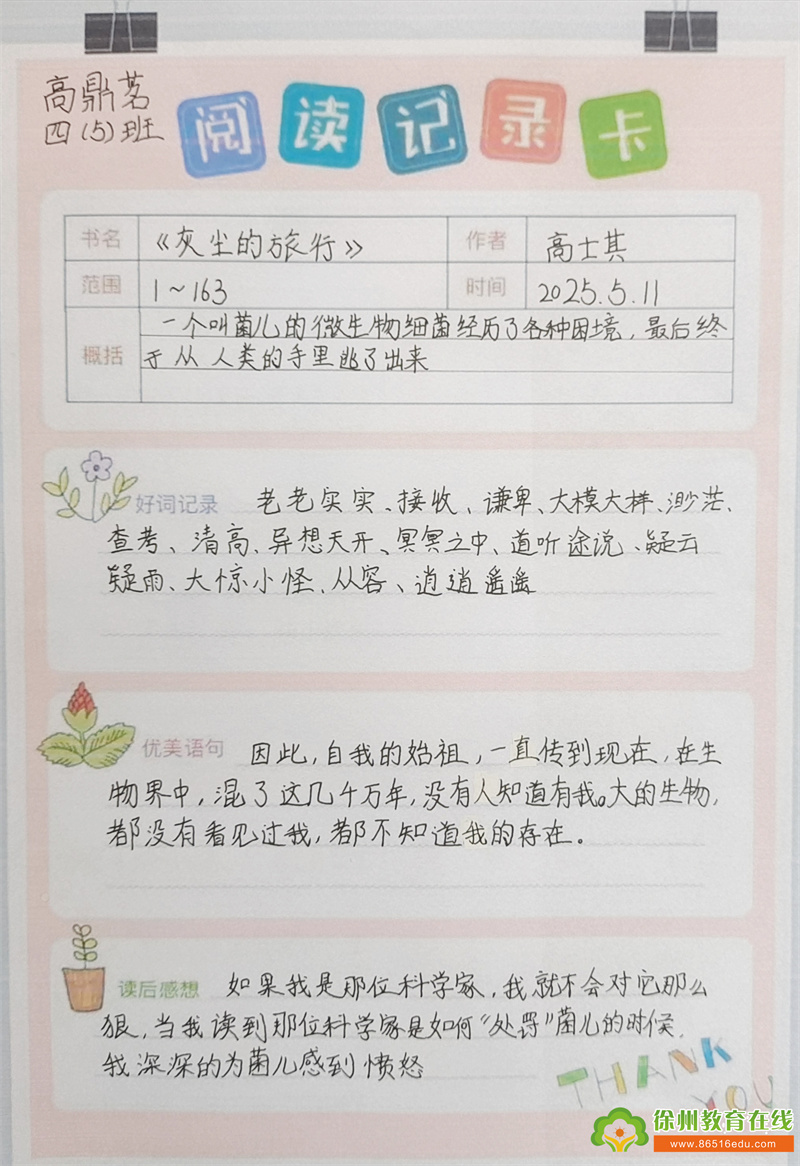 高鼎茗
四(5)班
阅读记录卡
书名 《灰尘的旅行》 作者 高士其
范围 1~163 时间 2025.5.11
概括 一个叫菌儿的微生物细菌经历了各种困境,最后终
于从人类的手里逃了出来
好词记录 老老实实、接收、谦卑、大模大样、渺茫、
查考、清高、异想天开、冥冥之中、道听途说、疑云
疑雨、大惊小怪、从容、逍逍遥遥
优美语句 因此,自我的始祖,一直传到现在,在生
物界中,混了这几千万年,没有人知道有我。大的生物,
都没有看见过我,都不知道我的存在。
读后感想 如果我是那位科学家,我就不会对它那么
狠,当我读到那位科学家是如何“处罚”菌儿的时候,
我深深的为菌儿感到愤怒
THANK
YOU
徐州教育在线
www.86516edu.com